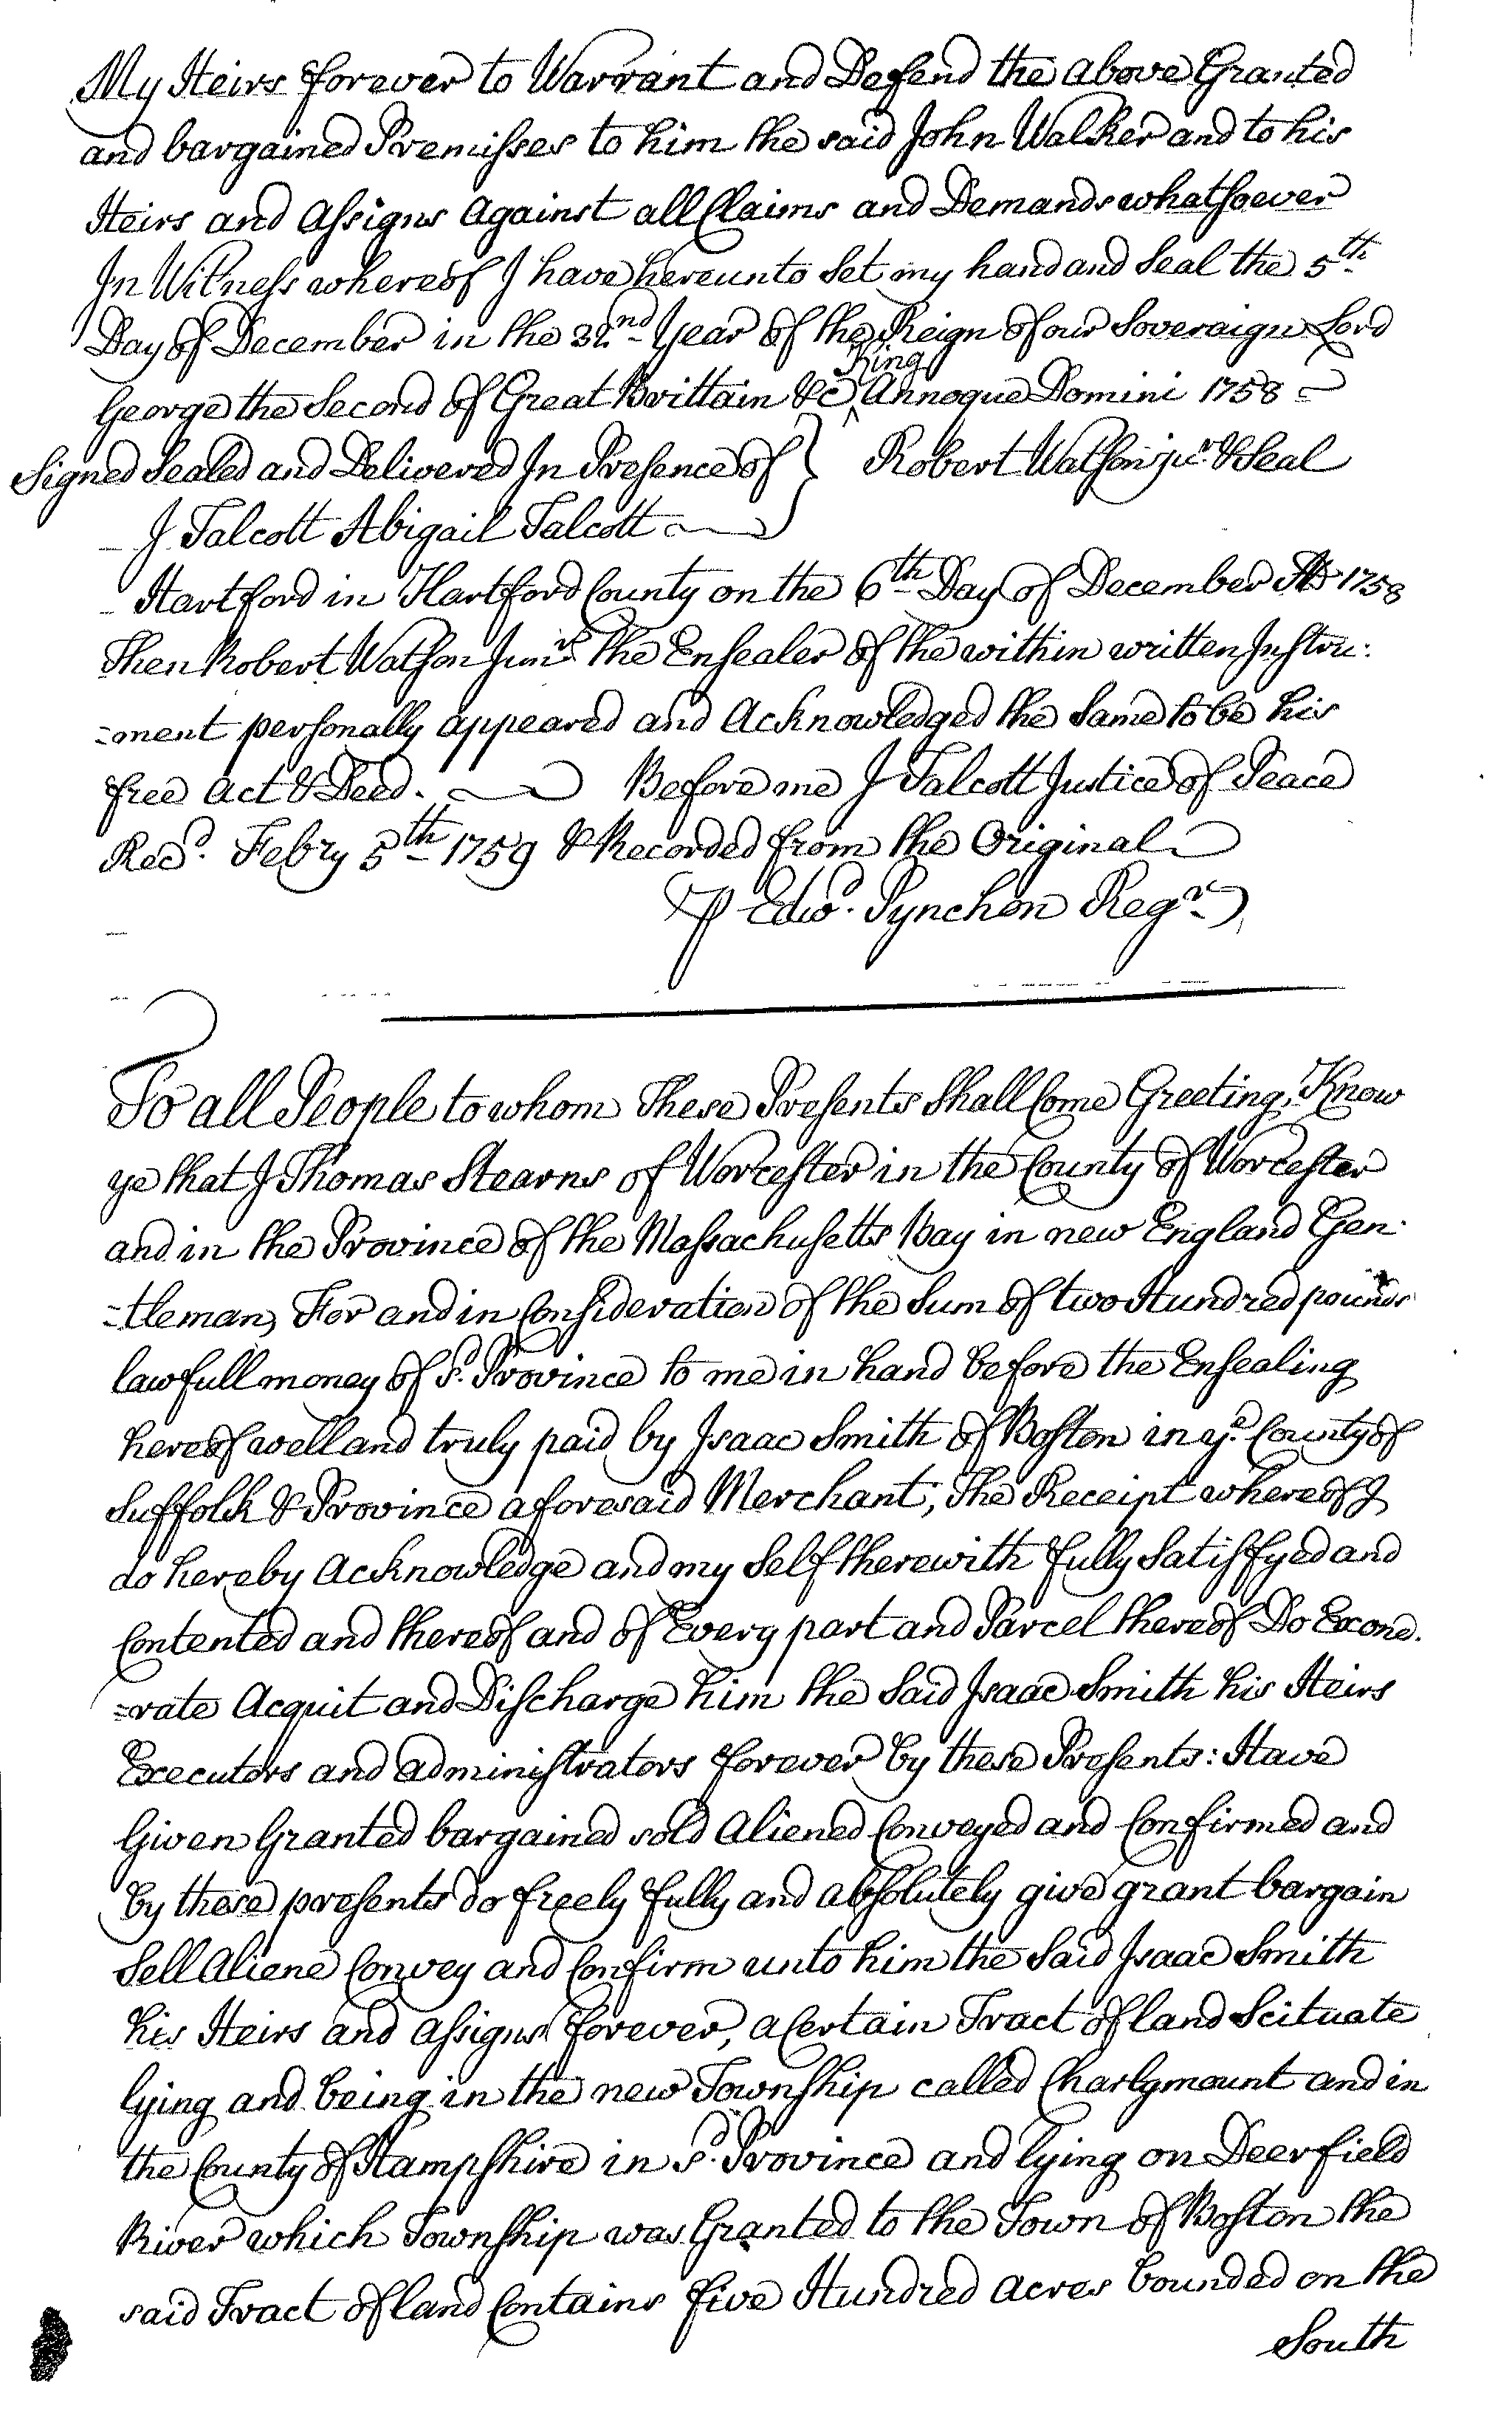 My Heirs forever to Warrant and Defend the above Granted
and bargained Premisses to him the said John Walker and to his
Heirs and Assigns Against all Claims and Demands whatsoever
In Witness whereof I have hereunto Set my hand and Seal the 5th
Day of December in the 32nd Year of the Reign of our Soveraign Lord
King
George the Second of Great Brittain &c ^ Annoque Domini 1758
Signed Sealed and Delivered In Presence of } Robert Watson jur. & Seal
J Talcott Abigail Talcott
Hartford in Hartford County on the 6th Day of December AD 1758
Then Robert Watson Junr. the Ensealer of the within written Instru:
=ment personally appeared and Acknowledged the Same to be his
free Act & Deed. Before me J Talcott Justice of Peace
Recd. Febry 5th 1759 & Recorded from the Original
⅌ Edwd. Pynchon Regr.
To all People to whom These Presents Shall Come Greeting, Know
ye that I Thomas Stearns of Worcester in the County of Worcester
and in the Province of the Massachusetts Bay in new England Gen:
=tleman, For and in Consideration of the Sum of two Hundred pounds
lawfull money of sd. Province to me in hand before the Ensealing
hereof well and truly paid by Isaac Smith of Boston in ye. County of
Suffolk & Province aforesaid Merchant, The Receipt whereof I
do hereby Acknowledge and my Self therewith fully Satisfyed and
Contented and thereof and of Every part and Parcel thereof Do Exone.
=rate Acquit and Discharge him the Said Isaac Smith his Heirs
Executors and administrators forever by these Presents: Have
Given Granted bargained sold Aliened Conveyed and Confirmed and
by these presents do freely fully and absolutely give grant bargain
Sell Aliene Convey and Confirm unto him the Said Isaac Smith
his Heirs and Assigns forever, a Certain Tract of land Scituate
lying and being in the new Township called Charlymount and in
the County of Hampshire in sd. Province and lying on Deerfield
River which Township was Granted to the Town of Boston the
said Tract of land Contains five Hundred acres bounded on the
South